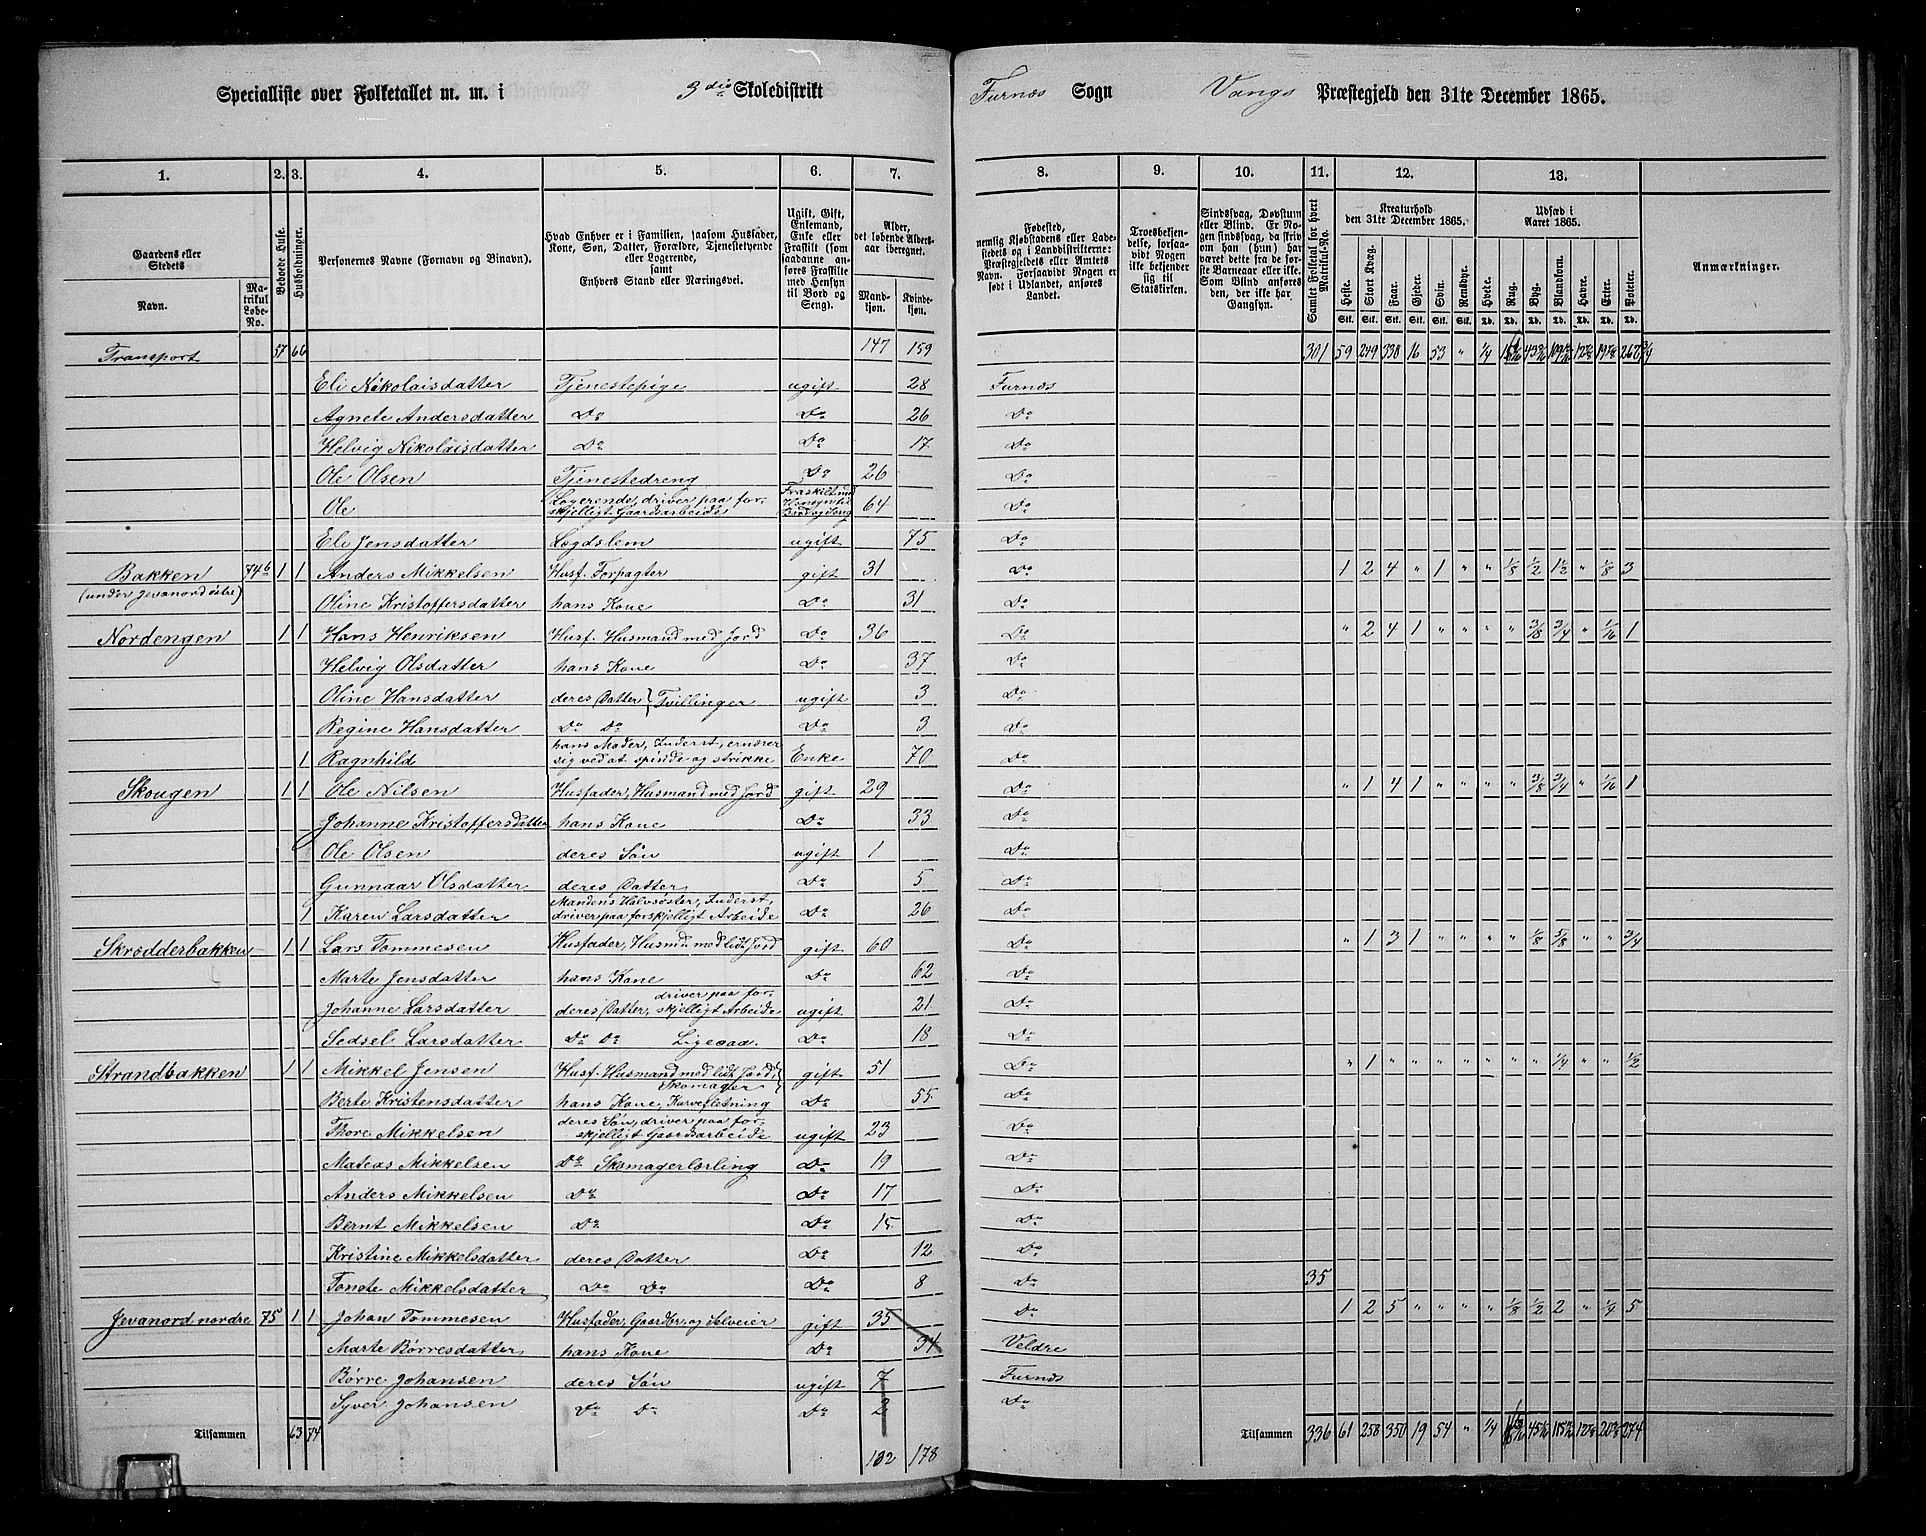 Specialliste over Folketallet m. m. i 3die Skoledistrikt Furnæs Sogn Vangs Præstegjeld den 31te December 1865.
1. 2. 3. 4. 5. 6. 7. 8. 9. 10. 11. 12. 13.
Gaardens eller Stedets
Navn.
Matrikul Løbe-No.
Beboede Huse.
Husholdninger.
Personernes Navne (Fornavn og Binavn).
Hvad Enhver er i Familien, saasom Husfader, Kone, Søn, Datter, Forældre, Tjenestetyende eller Logerende, samt Enhvers Stand eller Næringsvei.
Ugift, Gift, Enkemand, Enke eller Fraskilt (som saadanne anføres Fraskilte med Hensyn til Bord og Seng).
Alder, det løbende Aldersaar iberegnet.
Mandkjøn. Kvindekjøn.
Fødested, nemlig Kjøbstadens eller Ladestedets og i Landdistrikterne: Præstegjeldets eller Amtets Navn. Forsaavidt Nogen er født i Udlandet, anføres Landet.
Troesbekjendelse, forsaavidt Nogen ikke bekjender sig til Statskirken.
Sindssvag, Døvstum eller Blind. Er Nogen sindssvag, da skrives om han (hun) har været det fra de første Barneaar eller ikke. Som Blind anføres den, der ikke har Gangsyn.
Samlet Folketal for hvert Matrikul-No.
Kreaturhold den 31te December 1865.
Heste. Stort Kvæg. Faar. Gjeder. Svin. Rensdyr.
Udsæd i Aaret 1865.
Hvede. Rug. Byg. Blandkorn. Havre. Erter. Poteter.
Anmærkninger.
Transport 57 66 147 159 301 59 249 338 16 53 " 1/4
Eli Nikolaisdatter Tjenestepige ugift 28 Furnæs
Agnete Andersdatter Do Do 26 Do
Helvig Nikolaisdatter Do Do 17 Do
Ole Olsen Tjenestedreng Do 26 Do
Ole Logerende, driver paa forskjelligt Gaardsarbeide Fraskilt med Hensyn til Bord og Seng 64 Do
Eli Jensdatter Lægdslem ugift 75 Do
Bakken 74b 1 1 Anders Mikkelsen Husf. Forpagter gift 31 Do 1 2 4 " 1 " " 1/8 1/2 1 1/2 " 1/8 3
(under Jevanord østre) Oline Kristoffersdatter hans Kone Do 31 Do
Nordengen 1 1 Hans Henriksen Husf. Husmand med Jord Do 36 Do " 2 4 1 " " " " 3/8 3/4 " 1/16 1
Helvig Olsdatter hans Kone Do 37 Do
Oline Hansdatter deres Datter } Tvillinger ugift 3 Do
Regine Hansdatter Do Do Do 3 Do
1 Ragnhild hans Moder, Inderst, ernærer sig ved at spinde og strikke Enke 70 Do
Skougen 1 1 Ole Nilsen Husfader, Husmand med Jord gift 29 Do " 1 4 1 " " " " 3/8 3/4 " 1/16 1
Johanne Kristoffersdatter hans Kone Do 33 Do
Ole Olsen deres Søn ugift 1 Do
Gunnaar Olsdatter deres Datter Do 5 Do
1 Karen Larsdatter Mandens Halvsøster, Inderst, driver paa forskjelligt Arbeide Do 26 Do
Skrødderbakken 1 1 Lars Tommesen Husfader, Husmd med lidt Jord gift 60 Do " 1 3 1 " " " " 1/8 5/8 " " 3/4
Marte Jensdatter hans Kone Do 62 Do
Johanne Larsdatter deres Datter, driver paa forskjelligt Arbeide ugift 21 Do
Sedsel Larsdatter Do Do Ligesaa. Do 18 Do
Strandbakken 1 1 Mikkel Jensen Husf. Husmand med lidt Jord, Skomager gift 51 Do " 1 " " " " " " " 1/4 " " 1/2
Berte Kristensdatter hans Kone, Kurvefletning Do 55 Do
Thore Mikkelsen deres Søn, driver paa forskjelligt Gaardsarbeide ugift 23 Do
Mateas Mikkelsen Do Skomagerlærling Do 19 Do
Anders Mikkelsen Do Do 17 Do
Bernt Mikkelsen Do Do 15 Do
Kristine Mikkelsdatter deres Datter Do 12 Do
Tonete Mikkelsdatter Do Do Do 8 Do 35
Jevanord nordre 75 1 1 Johan Tommesen Husfader, Gaardbr. og Selveier gift 35 Do 1 2 5 " " " " 1/8 1/2 2 " 1/4 5
Marte Børresdatter hans Kone Do 34 Veldre
Børre Johansen deres Søn ugift 7 Furnæs
Syver Johansen Do Do Do 2 Do
Tilsammen 63 74 162 178 Tilsammen 336 61 258 350 19 54 " 1/4 274